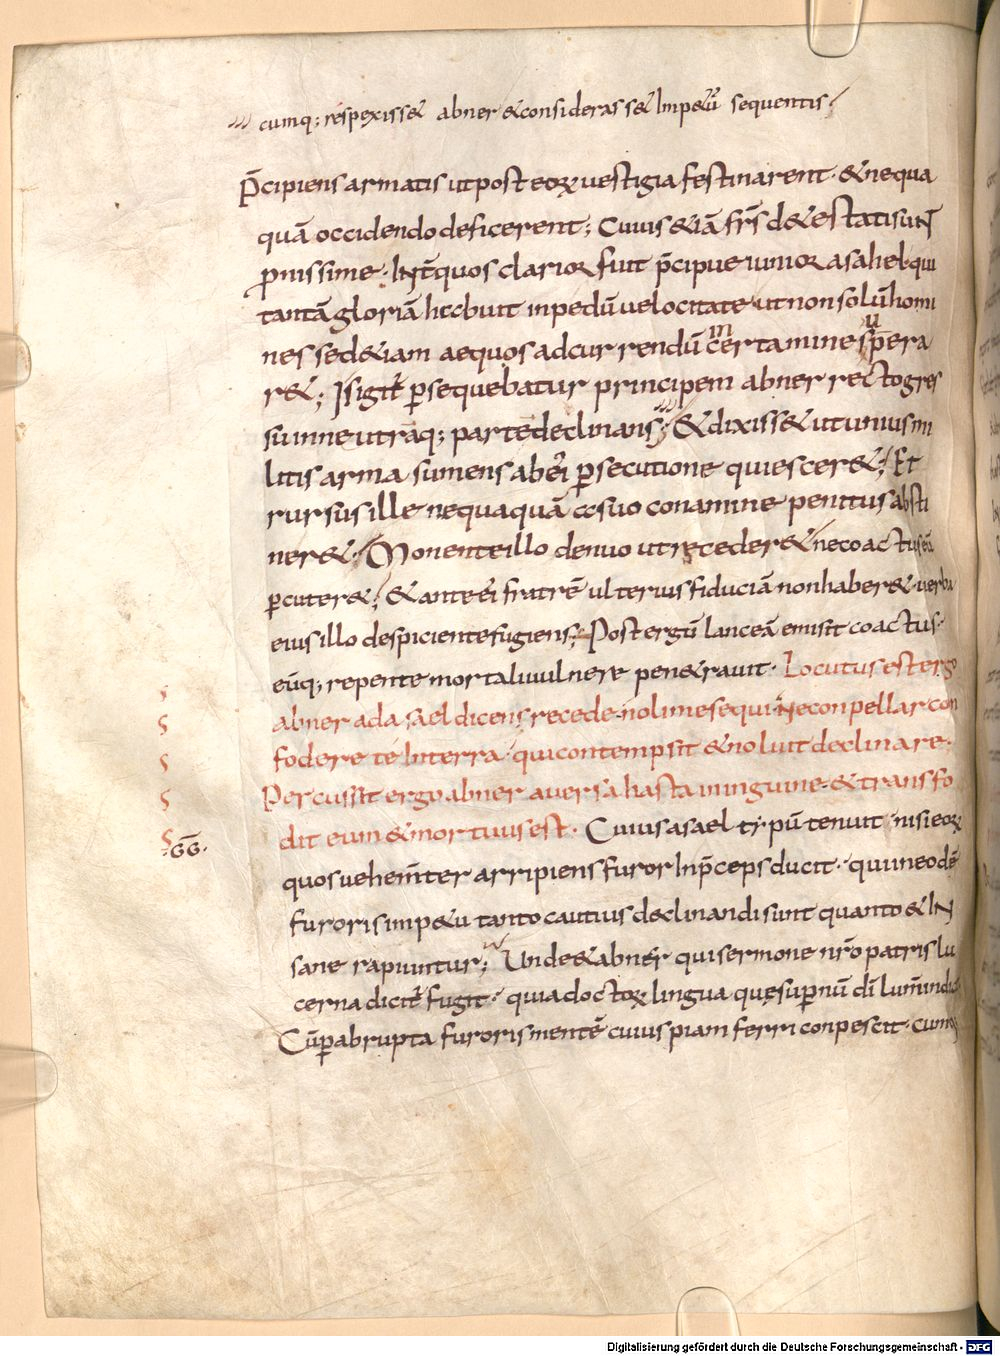 cumq; respexiss& abner & considerass& Impetū sequentis
P̄cipiens armatis ut post eoꝝ vestigia festinarent · & nequa
quā occidendo deficerent; Cuius &iā fr̄s d&estatisuN
pnissime · INt̄ quos clarior fuit p̄cipue iunior asahel · qui
tantā gloriā habuit in pedū velocitate ut non solū homi
nes sed &iam aequos ad currendū certamine supera
r&; Is igit̄ p̄sequebatur principem abner recto gres
su in neutraq; parte declinans; & dixiss& ut unius mi
litis arma sumens ab ei p̄secutione quiescer&; Et
rursus ille nequaquā a suo conamine penitus absti
ner&; Monente illo denuo ut receder& nec coactus eū
p̄cuter&; & ante ei fratrē ulterius fiduciā non haber& · verba
eius illo despiciente fugiens; Post ergū lanceā emisit coactus ·
eūq; repente mortali vulnere pen&ravit · Locutus est ergo
abner ad asael dicens recede · noli me sequi · Ne conpellar con
fodere te In terra · qui contempsit & noluit declinare ·
Percussit ergo abner aversa hasta in inguine · & transfo
dit eum & mortuus est · Cuius asael typū tenuit · nisi eoꝝ
ǤǤ.
quos vehem̄ter arripiens furor In p̄ceps ducit · qui in eodē
furoris imp&u tanto cautius declinandi sunt quanto & IN
sane rapiuntur; Unde & abner qui sermone nr̄o patris lu
cerna dicit̄ fugit · quia doctoꝝ lingua quę supernū dī lum̄ indic
Cū p abrupta furoris mentē cuiuspiam ferri conpescit · cumq;
Digitalisierung gefördert durch die Deutsche Forschungsgemeinschaft - DFG